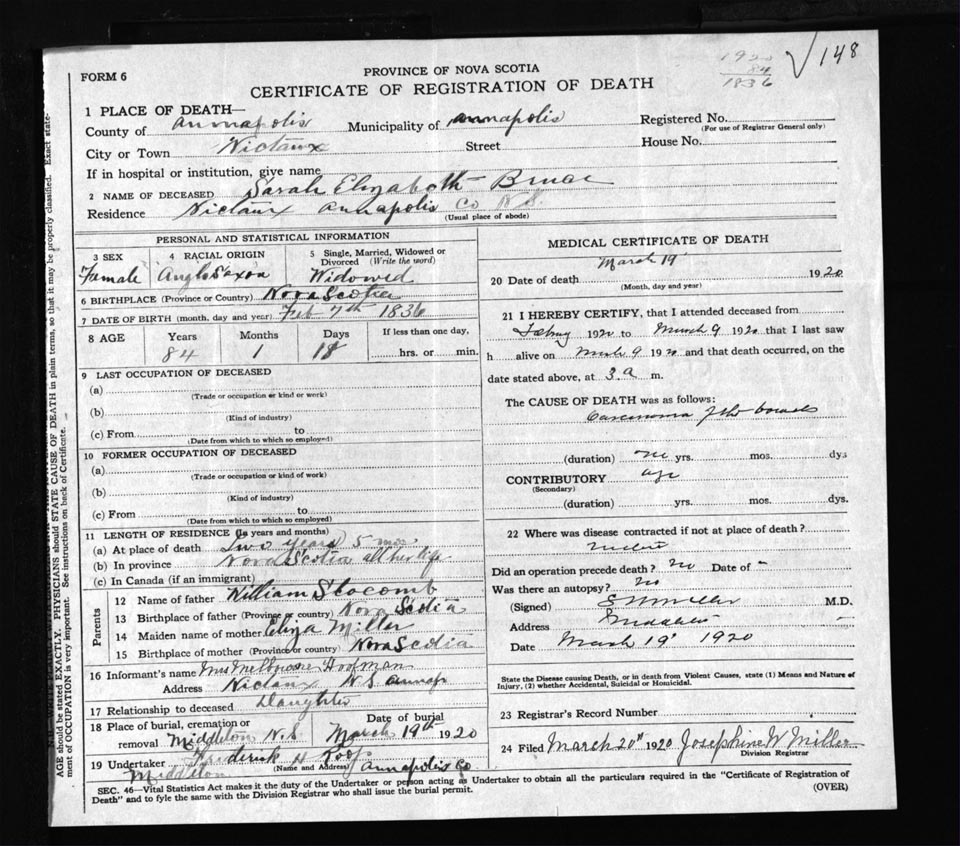 148
1920
84
1836
FORM 6
PROVINCE OF NOVA SCOTIA
CERTIFICATE OF REGISTRATION OF DEATH
1 PLACE OF DEATH—
County of Annapolis Municipality of Annapolis Registered No.
(For use of Registrar General only)
City or Town Nictaux Street House No.
If in hospital or institution, give name
2 NAME OF DECEASED Sarah Elizabeth Bruce
Residence Nictaux Annapolis Co N.S.
(Usual place of abode)
PERSONAL AND STATISTICAL INFORMATION
3 SEX 4 RACIAL ORIGIN 5 Single, Married, Widowed or Divorced (Write the word)
Female Anglo Saxon Widowed
6 BIRTHPLACE (Province or Country) Nova Scotia
7 DATE OF BIRTH (month, day and year) Feb 7th 1836
8 AGE Years Months Days If less than one day,
84 1 18 hrs. or min.
9 LAST OCCUPATION OF DECEASED
(a)
(Trade or occupation or kind or work)
(b)
(Kind of industry)
(c) From to
(Date from which to which so employed)
10 FORMER OCCUPATION OF DECEASED
(a)
(Trade or occupation or kind of work)
(b)
(Kind of industry)
(c) From to
(Date from which to which so employed)
11 LENGTH OF RESIDENCE (In years and months)
(a) At place of death Two years 5 mos
(b) In province Nova Scotia all her life
(c) In Canada (if an immigrant)
Parents
12 Name of father William Slocomb
13 Birthplace of father (Province or country) Nova Scotia
14 Maiden name of mother Eliza Miller
15 Birthplace of mother (Province or country) Nova Scotia
16 Informant's name Mrs Melbourne Hoofman
Address Nictaux N S Annap
17 Relationship to deceased Daughter
18 Place of burial, cremation or removal Middleton N.S Date of burial March 19th 1920
19 Undertaker Frederick H Roop
(Name and Address)
Middleton Annapolis Co
MEDICAL CERTIFICATE OF DEATH
20 Date of death March 19 1920
(Month, day and year)
21 I HEREBY CERTIFY, that I attended deceased from
1920 to March 9 1920 that I last saw
h alive on March 9 1920 and that death occurred, on the
date stated above, at 3 a m.
The CAUSE OF DEATH was as follows:
Carcinoma of the bowels
(duration) yrs. mos. dys
CONTRIBUTORY age
(Secondary)
(duration) yrs. mos. dys.
22 Where was disease contracted if not at place of death?
Did an operation precede death? No Date of -
Was there an autopsy? No
(Signed) Miller M.D.
Address Middleton
Date March 19 1920
State the Disease causing Death, or in death from Violent Causes, state (1) Means and Nature of
Injury, (2) whether Accidental, Suicidal or Homicidal.
23 Registrar's Record Number
24 Filed March 20th 1920 Josephine W Miller
Division Registrar
SEC. 46—Vital Statistics Act makes it the duty of the Undertaker or person acting as Undertaker to obtain all the particulars required in the "Certificate of Registration of
Death" and to fyle the same with the Division Registrar who shall issue the burial permit.
(OVER)
AGE should be stated EXACTLY. PHYSICIANS should STATE CAUSE OF DEATH in plain terms, so that it may be properly classified. Exact state-
ment of OCCUPATION is very important. See instructions on back of Certificate.